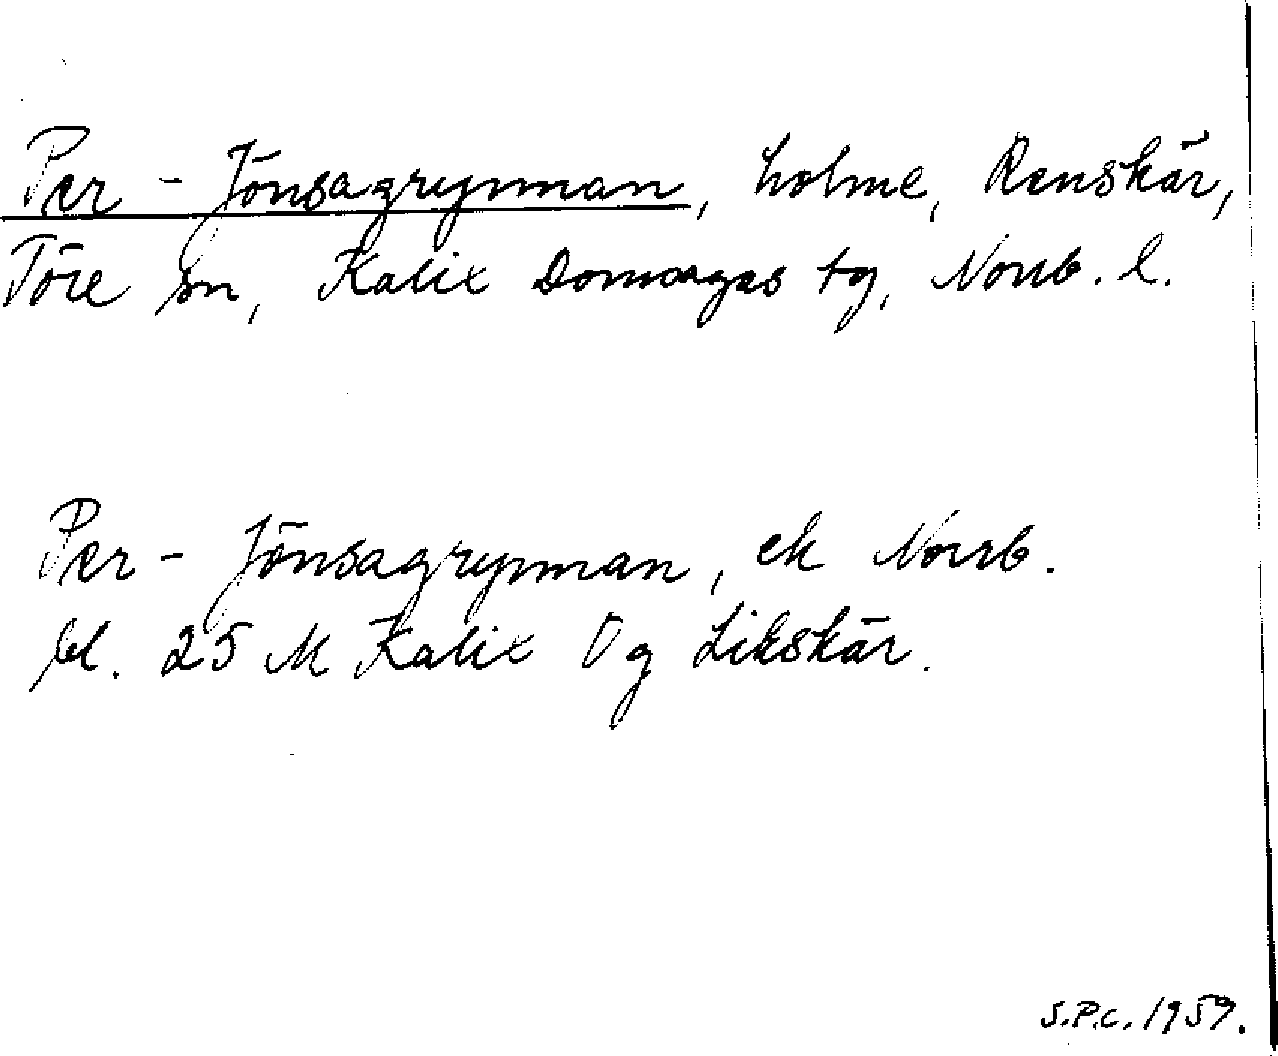 Per-Jönsagrynnan, holme, Renskär,
Töre sn, Kalix Domsagas tg, Norrb. l.
Per-Jönsagrynnan, ek Norrb.
bl. 25 M Kalix Og Likskär.
S.P.C. 1959.